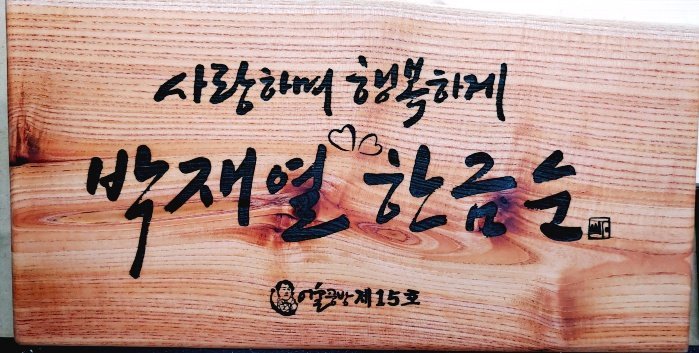 사랑하며 행복하게
박재열 한금순
어울공방 제15호